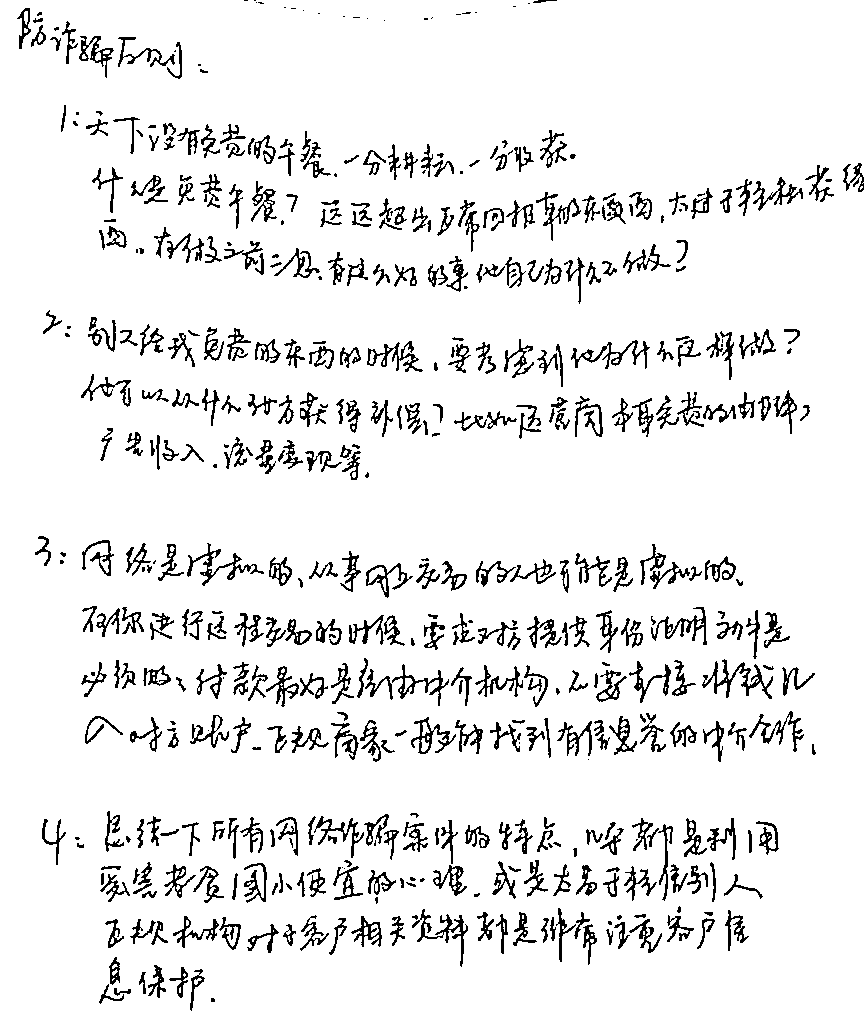 防诈骗原则：
1：天下没有免费的午餐、一分耕耘、一分收获。
什么是免费午餐？远远超出正常回报率的东西，太过于轻松获得
西。在做之前三思、有这么好的事他自己为什么不做？
2：别人给我免费的东西的时候，要考虑到他为什么这样做？
他可以从什么地方获得补偿？比如运营商 免费的
广告收入、流量变现等。
3：网络是虚拟的、从事网上交易的人也可能是虚拟的、
在你进行远程交易的时候、要求对方提供身份证明文件是
必须的、付款最好是经由中介机构、不要直接将钱汇
入对方账户、正规商家一般都能找到有信誉的中介合作，
4：总结一下所有网络诈骗案件的特点，几乎都是利用
受害者贪图小便宜的心理、或是太易于轻信别人
正规机构对于客户相关资料都是非常注重客户信
息保护．